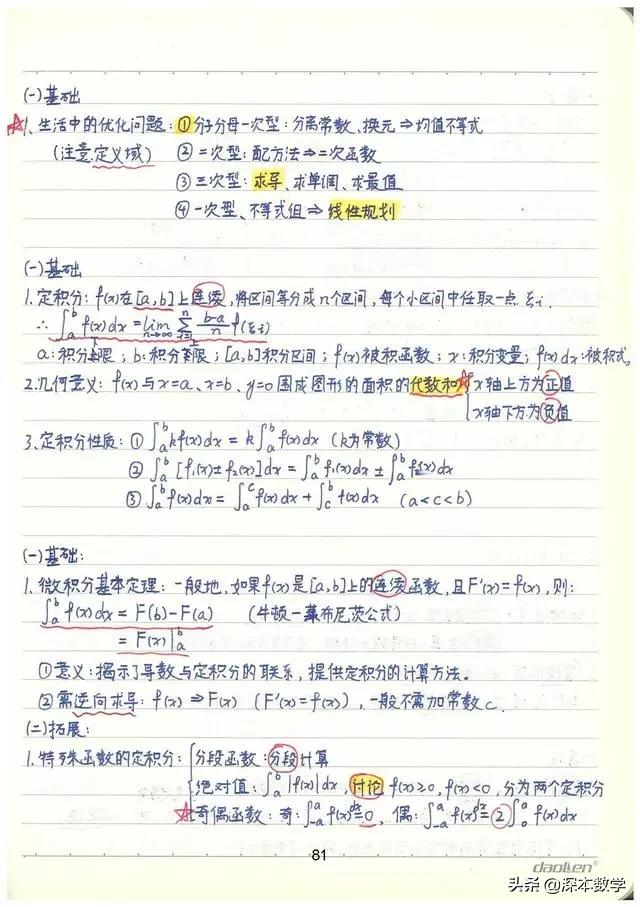 (一)基础
☆1、生活中的优化问题：①分子分母一次型：分离常数、换元⇒均值不等式
(注意定义域) ②二次型：配方法⇒二次函数
③三次型：求导、求单调、求最值
④一次型、不等式组⇒线性规划
(一)基础
1.定积分：f(x)在[a,b]上连续，将区间等分成n个区间，每个小区间中任取一点ξi.
∴ ∫_a^b f(x)dx = lim_{n→∞} Σ_{i=1}^n (b-a)/n f(ξi)
a:积分下限；b:积分上限；[a,b]积分区间；f(x)被积函数；x:积分变量；f(x)dx:被积式。
2.几何意义：f(x)与x=a、x=b、y=0围成图形的面积的代数和☆{x轴上方为正值
x轴下方为负值
3.定积分性质：①∫_a^b kf(x)dx = k∫_a^b f(x)dx (k为常数)
②∫_a^b [f₁(x)±f₂(x)]dx = ∫_a^b f₁(x)dx ± ∫_a^b f₂(x)dx
③∫_a^b f(x)dx = ∫_a^c f(x)dx + ∫_c^b f(x)dx (a<c<b)
(一)基础：
1.微积分基本定理：一般地，如果f(x)是[a,b]上的连续函数，且F'(x)=f(x)，则：
∫_a^b f(x)dx = F(b)-F(a) (牛顿—莱布尼茨公式)
= F(x)|_a^b
①意义：揭示了导数与定积分的联系，提供定积分的计算方法。
②需逆向求导：f(x)⇒F(x) (F'(x)=f(x))，一般不需加常数c.
(二)拓展：
1.特殊函数的定积分：{分段函数：分段计算
绝对值：∫_a^b |f(x)|dx，讨论f(x)≥0，f(x)<0，分为两个定积分
☆奇偶函数：奇：∫_{-a}^a f(x)dx=0，偶：∫_{-a}^a f(x)dx=2∫_0^a f(x)dx
81
daolen®
头条@深本数学